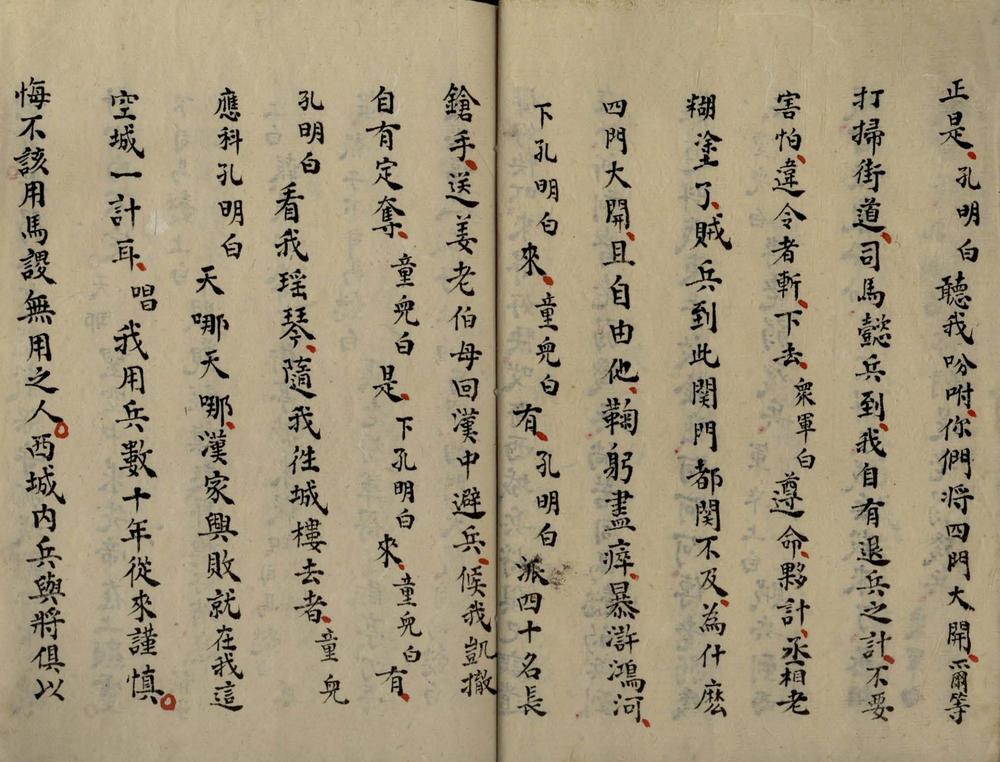 正是、孔明白 聽我吩咐、你們將四門大開、爾等
打掃街道、司馬懿兵到、我自有退兵之計、不要
害怕、違令者斬、下去、衆軍白 遵命、夥計、丞相老
糊塗了、賊兵到此関門都関不及、為什麽
四門大開、且自由他、鞠躬盡瘁、暴滸鴻河、
下孔明白 來、童兒白 有、孔明白 派四十名長
鎗手、送姜老伯母回漢中避兵、候我凱撤
自有定奪、童兒白 是、下孔明白 來、童兒白 有、
孔明白 看我瑶琴、隨我徃城樓去者、童兒
應科孔明白 天哪天哪、漢家興敗就在我這
空城一計耳、唱 我用兵數十年從來謹慎。
悔不該用馬謖無用之人。西城內兵與將俱以